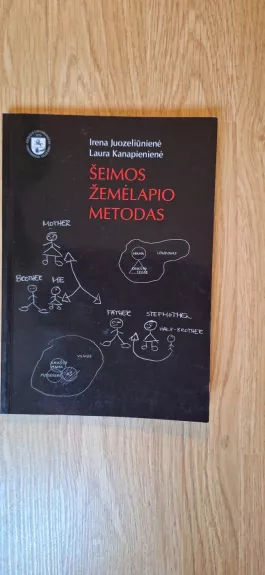 Irena Juozeliūnienė
Laura Kanapienienė
ŠEIMOS
ŽEMĖLAPIO
METODAS
MOTHER
LONDONAS
MAMA
BROTHER
ME
FATHER
STEPMOTHER
HALF-BROTHER
VILNIUS
AŠ